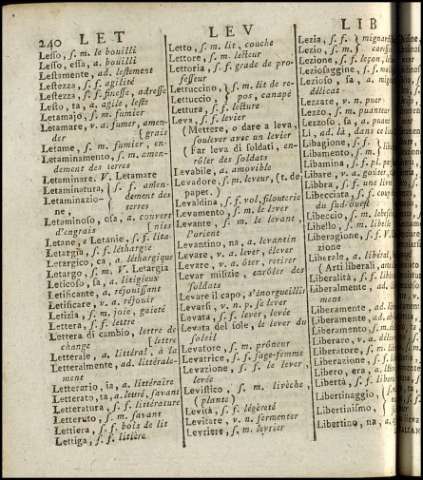 240 LET LEV LIB
Lesso, s. m. le bouilli
Lesso, essa, a. bouilli
Lestamente, ad. lestement
Lestezza, s. f. agilité
Lestezza, s. f. finesse, adresse
Lesto, ta, a, agile, leste
Letamajo, s. m. fumier
Letamare, v. a. fumer, amen-
der [grais
Letame, s. m. fumier, en-
Letaminamento, s. m. amen-
dement des terres
Letaminare. V. Letamare
Letaminatura, s. f. amen-
Letaminazio- dement des
ne, terres
Letaminoso, osa, a, couvert
d'engrais [nies
Letane, e Letanie, s. f. lita-
Letargia, s. f. léthargie
Letargico, ca, a. léthargique
Letargo, s. m. V. Letargia
Leticoso, sa, a. litigieux
Letificante, a. réjouissant
Letificare, v. a. réjouir
Letizia, s. f. joie, gaieté
Lettera, s. f. lettre
Lettera di cambio, lettre de
change [lettre
Letterale, a. littéral, à la
Letteralmente, ad. littérale-
ment
Letterario, ia, a. littéraire
Letterato, ta, a. lettré, savant
Letteratura, s. f. littérature
Letteruto, s. m. savant
Lettiera, s. f. bois de lit
Lettiga, s. f. litière
Letto, s. m. lit, couche
Lettore, s. m. lecteur
Lettoria, s. f. grade de pro-
fesseur
Lettuccino, s. m. lit de re-
Lettuccio, pos, canapé
Lettura, s. f. lecture
Leva, s. f. levier
(Mettere, o dare a leva,
soulever avec un levier
(Far leva di soldati, en-
rôler des soldats
Levabile, a. amovible
Levadore, s. m. leveur, (t. de
papet.)
Levaldina, s. f. vol, filouterie
Levamento, s. m. le lever
Levante, s. m. le levant,
l'orient
Levantino, na, a. levantin
Levare, v. a. lever, élever
Levare, v. a. ôter, retirer
Levar milizie, enrôler des
soldats
Levare il capo, s'énorgueillir
Levarsi, v. n. p. se lever
Levata, s. f. lever, levée
Levata del sole, le lever du
soleil
Levatore, s. m. prôneur
Levatrice, s. f. sage-femme
Levazione, s. f. le lever,
levée
Levistico, s. m. livèche
(plante)
Levità, s. f. légèreté
Levitare, v. n. fermenter
Levriere, s. m. levrier
Lezia, s. f. mignar
Lezio, s. m. caresse
Lezione, s. f. leçon, le
Leziosaggine, s. f. mi
Lezioso, sa, a.
délicat
Lezzare, v. n. puer
Lezzo, s. m. puanteur
Lezzoso, sa, a. puant
Li, ad. là, dans ce lieu
Libagione, s. f.
Libamento, s. m.
Libamina, s. f. pl.
Libare, v. a. goûter,
Libbra, s. f. une livre
Libecciata, s. f. coup
du Sud-Ouest
Libeccio, s. m.
Libello, s. m. libelle
Liberagione, s. f.
zione
Liberale, a. libéral,
(Arti liberali,
Liberalità, s. f.
Liberalmente, ad.
ment
Liberamente, ad.
Liberamento, s. m.
Liberante, a.
Liberare, v. a.
Liberatore, s. m.
Liberazione, s. f.
Libero, era, a.
Libertà, s. f.
Libertinaggio,
Libertinismo,
Libertino, na, a.